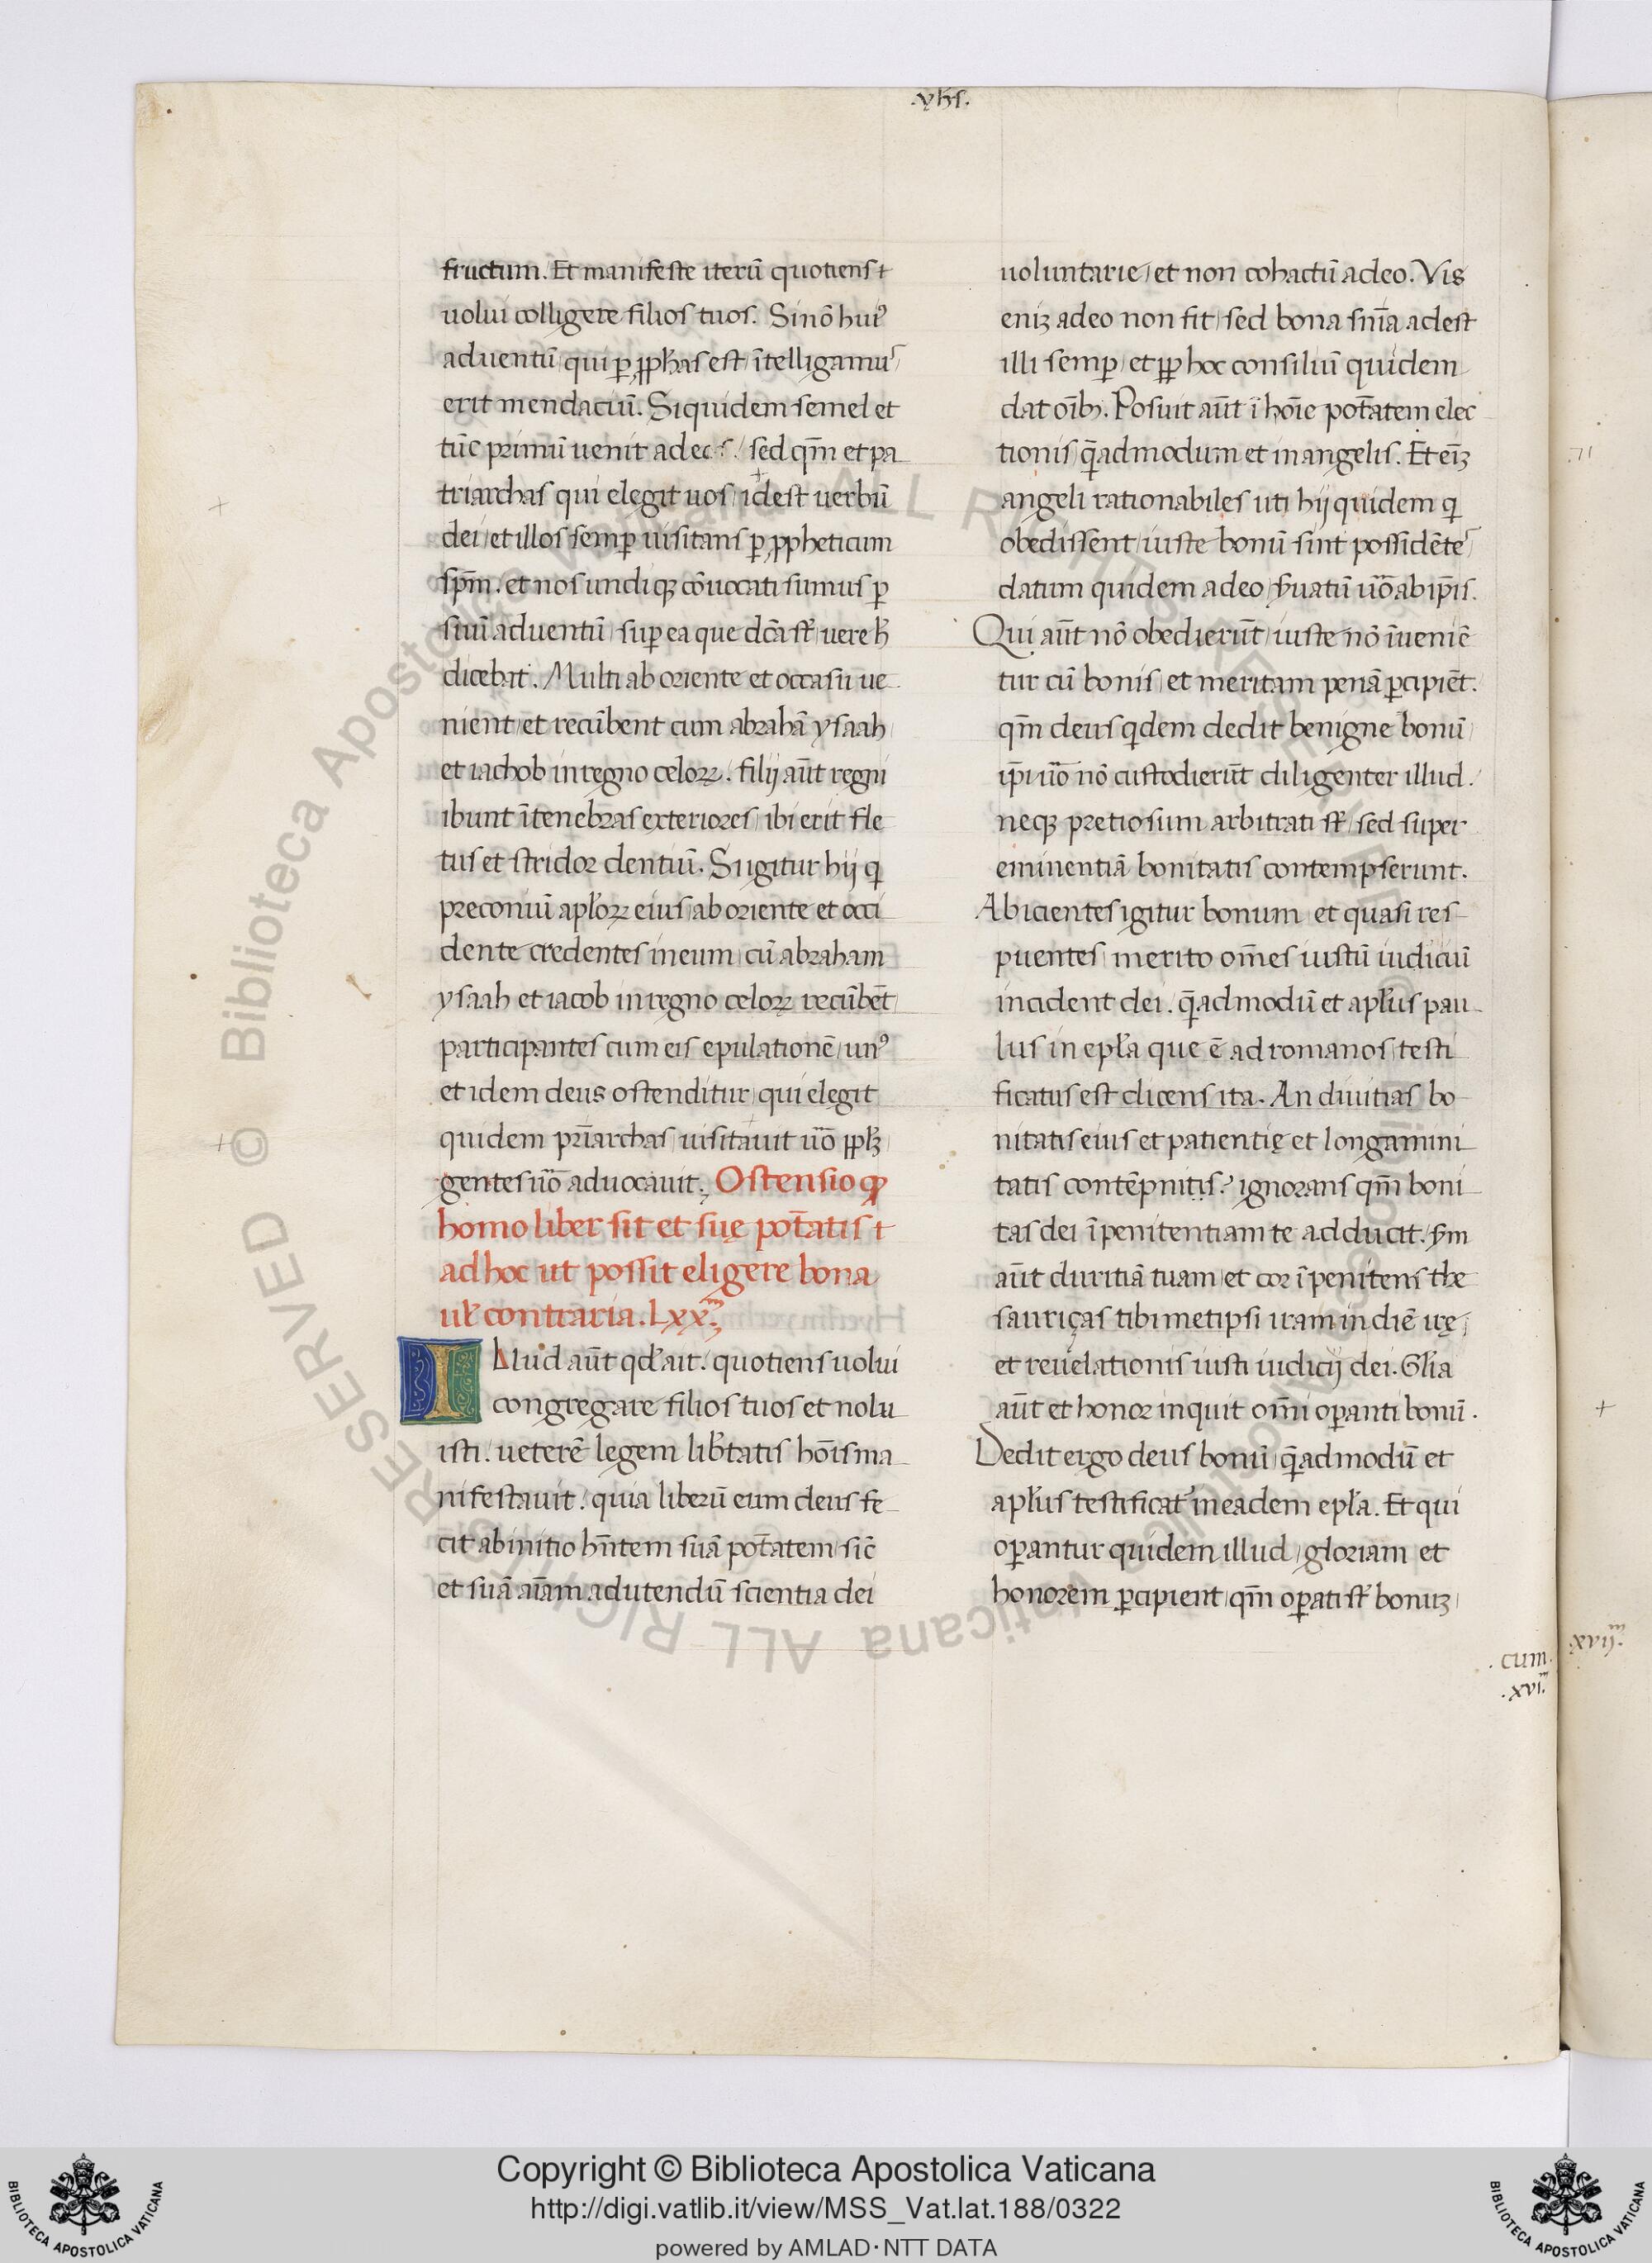 .yhs.
fructum. Et manifeste iterū quotiens
uolui colligere filios tuos. Si nō huiꝰ
aduentū qui ꝑ ꝓphas est ītelligamus
erit mendaciū. Siquidem semel et
tūc primū uenit ad eos. sed qm̄ et pa
triarchas qui elegit uos idest uerbū
dei et illos semꝑ uisitans ꝑ ꝓpheticum
spm̄. et nos undiqꝫ cōuocati sumus ꝑ
suū aduentū suꝑ ea que dc̄a st̄ uere h̄
dicebat. Multi ab oriente et occasu ue
nient et recūbent cum abrahā ysaah
et iachob in regno celoꝝ. filij aūt regni
ibunt ī tenebras exteriores ibi erit fle
tus et stridor dentiū. Si igitur hij q
preconiū apl̄oꝝ eius ab oriente et occi
dente credentes in eum cū abraham
ysaah et iacob in regno celoꝝ recūbēt
participantes cum eis epulationē unꝰ
et idem deus ostenditur qui elegit
quidem pr̄iarchas uisitauit uō
gentes uō aduocauit. Ostensio ꝙ
homo liber sit et suę pot̄atis
ad hoc ut possit eligere bona
ul̄ contraria. Lxx.m
Illud aūt qd̓ ait. quotiens uolui
congregare filios tuos et nolu
isti. ueterē legem lib̄tatis hōis ma
nifestauit. quia liberū eum deus fe
cit ab initio hn̄tem suā pot̄atem sic̄
et suā aīam ad utendū scientia dei
uoluntarie et non cohactū a deo. Vis
eniꝫ a deo non fit sed bona sn̄ia adest
illi semꝑ et ꝓꝑ hoc consiliū quidem
dat oībꝫ. Posuit aūt ī hōie pot̄atem elec
tionis q̄admodum et in angelis. Et eīꝫ
angeli rationabiles uti hij quidem q
obedissent iuste bonū sint possidētes
datum quidem a deo s̓uatū uō ab ip̄is.
Qui aūt nō obedierūt iuste nō īueniē
tur cū bonis et meritam penā ꝑcipiēt.
qm̄ deus qdem dedit benigne bonū
ip̄i uō nō custodierūt diligenter illud.
neqꝫ pretiosum arbitrati st̄ sed super
eminentiā bonitatis contempserunt.
Abicientes igitur bonum et quasi res
puentes merito om̄es iustū iudiciū
incident dei. q̄admodū et apl̄us pau
lus in epl̄a que ē ad romanos testi
ficatus est dicens ita. An diuitias bo
nitatis eius et patientię et longamini
tatis contēpnitis? ignorans qm̄ boni
tas dei ī penitentiam te adducit. s̓m
aūt duritiā tuam et cor īpenitens the
sauriças tibimetipsi iram in diē irę
et reuelationis iusti iudicij dei. Gl̄ia
aūt et honor inquit om̄i oꝑanti bonū.
Dedit ergo deus bonū q̄admodū et
apl̄us testificat̓ in eadem epl̄a. Et qui
oꝑantur quidem illud gloriam et
honorem ꝑcipient qm̄ oꝑati st̄ bonuꝫ
.cum.
.xvi.m
.xvij.m
Copyright © Biblioteca Apostolica Vaticana
http://digi.vatlib.it/view/MSS_Vat.lat.188/0322
powered by AMLAD·NTT DATA
BIBLIOTECA APOSTOLICA VATICANA
BIBLIOTECA APOSTOLICA VATICANA
© Biblioteca Apostolica Vaticana ALL RIGHTS RESERVED